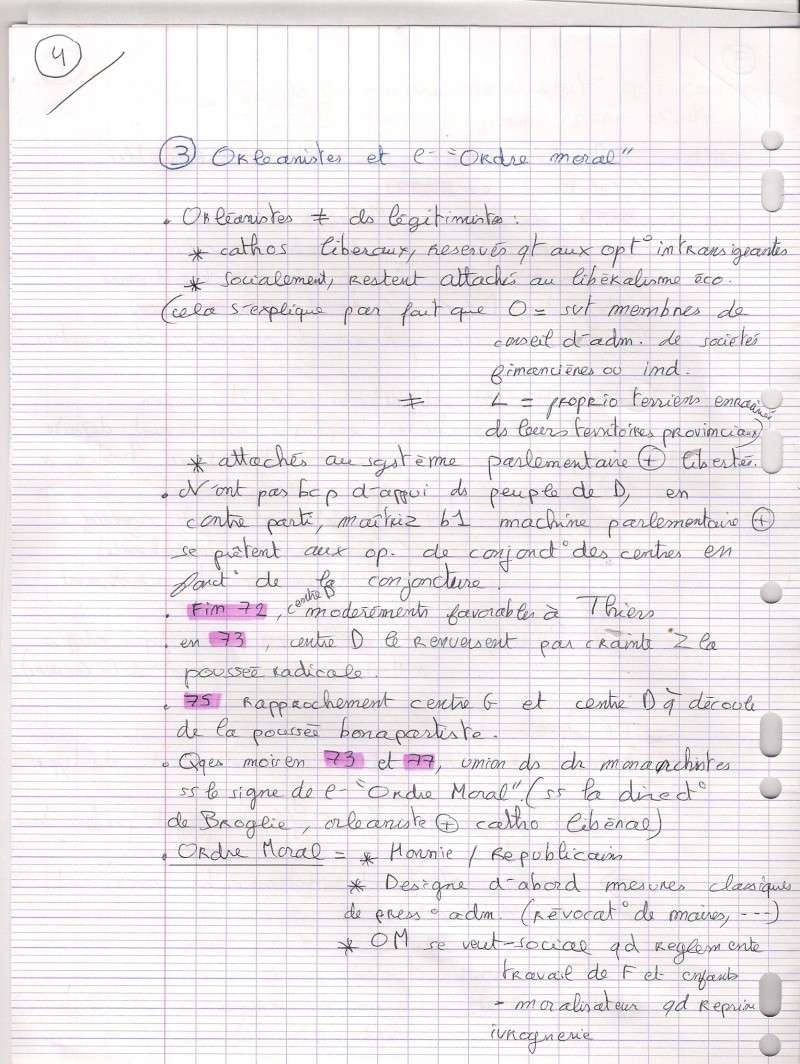 4
③ Orléanistes et l'"Ordre moral"
. Orléanistes ≠ ds légitimistes :
* cathos liberaux, reservés qt aux opt° intransigeantes
* socialement, restent attachés au libéralisme éco.
(cela s'explique par fait que O = svt membres de
conseil d'adm. de sociétés
financières ou ind.
≠ L = proprio terriens enracinés
ds leurs territoires provinciaux)
* attachés au système parlementaire ⊕ libertés.
. N'ont pas bcp d'appui ds peuple de D, en
contre parti, maîtriz b1 machine parlementaire ⊕
se prêtent aux op. de conjonct° des centres en
fonct° de la conjoncture.
. Fin 72, centre D modérément favorables à Thiers
. en 73, centre D le renversent par crainte 2 la
poussée radicale.
. 75 rapprochement centre G et centre D q̃ découle
de la poussée bonapartiste.
. Qqes mois en 73 et 77, union ds dr monarchistes
ss le signe de l'"Ordre Moral" (ss la direct°
de Broglie, orleaniste ⊕ catho libéral)
. Ordre Moral = * Honnie / Republicains
* Designe d'abord mesures classiques
de press° adm. (révocat° de maires, ---)
* OM se veut-social qd reglemente
travail de F et enfants
- moralisateur qd reprime
ivrognerie